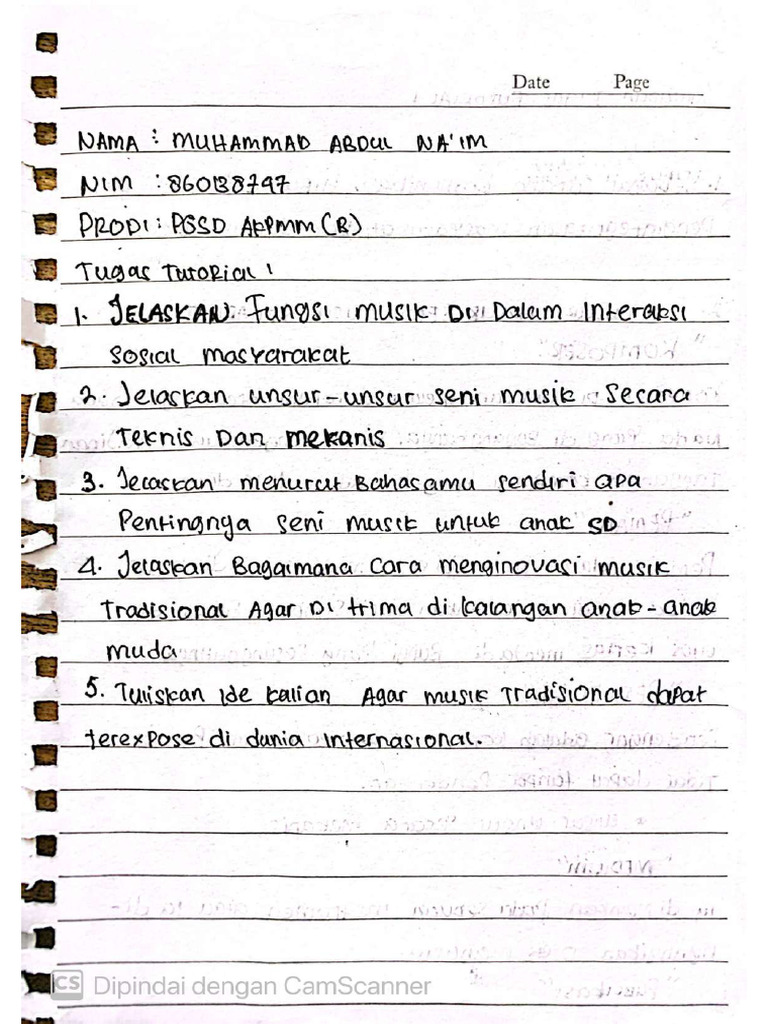 Date Page
NAMA : MUHAMMAD ABDUL NA'IM
NIM : 860138747
PRODI : PGSD AKPMM (R)
Tugas Tutorial 1
1. JELASKAN Fungsi musik Di Dalam Interaksi
sosial masyarakat
2. Jelaskan unsur-unsur seni musik Secara
Teknis Dan mekanis
3. Jelaskan menurut Bahasamu sendiri apa
Pentingnya seni musik untuk anak SD
4. Jelaskan Bagaimana Cara menginovasi musik
Tradisional Agar Di trima di kalangan anak-anak
muda
5. Tuliskan Ide kalian Agar musik Tradisional dapat
terexpose di dunia Internasional.
CS Dipindai dengan CamScanner